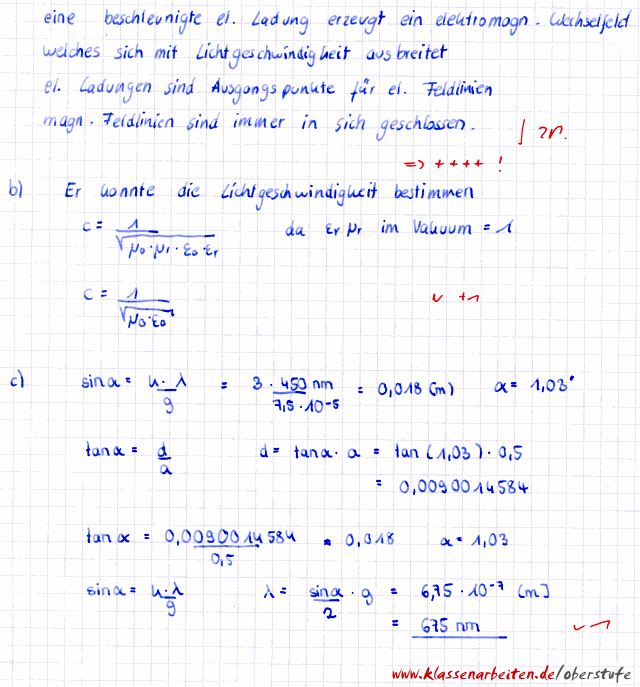 eine beschleunigte el. Ladung erzeugt ein elektromagn. Wechselfeld
welches sich mit Lichtgeschwindigkeit ausbreitet
el. Ladungen sind Ausgangspunkte für el. Feldlinien
magn. Feldlinien sind immer in sich geschlossen.
=> ++++ !
b) Er konnte die Lichtgeschwindigkeit bestimmen
c = 1/√(μ0·μr·ε0·εr) da εr μr im Vakuum = 1
c = 1/√(μ0·ε0) v +1
c) sinα = n·λ/g = 3·450 nm/7,5·10^-5 = 0,018 (m) α = 1,03°
tanα = d/a d = tanα · a = tan(1,03) · 0,5
= 0,0090014584
tanα = 0,0090014584/0,5 = 0,018 α = 1,03
sinα = n·λ/g λ = sinα/2 · g = 6,75 · 10^-7 [m]
= 675 nm
www.klassenarbeiten.de/oberstufe